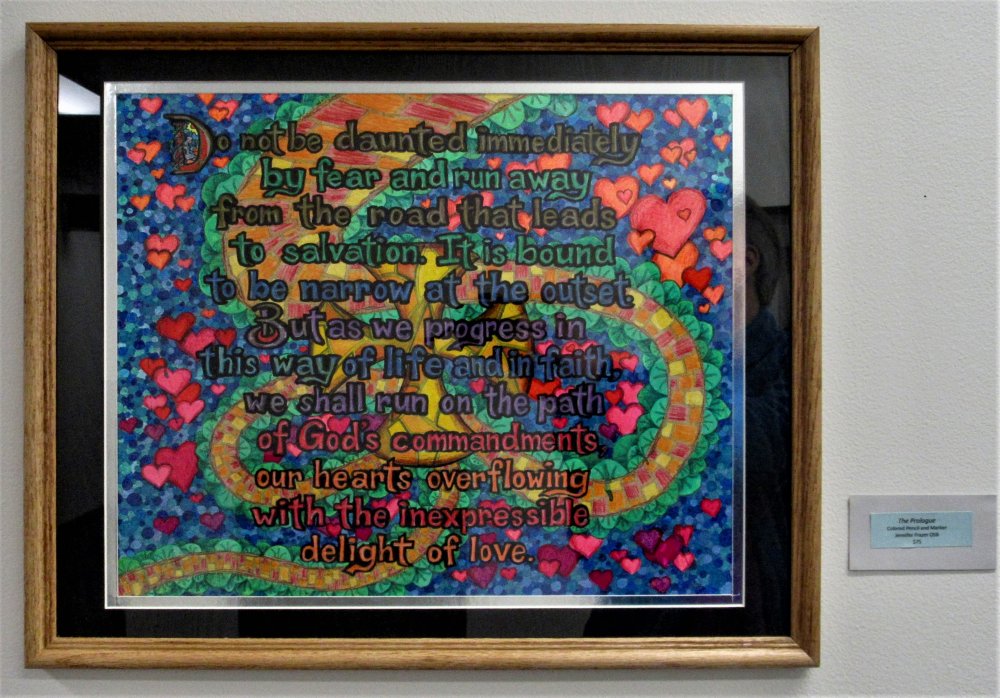 Do not be daunted immediately
by fear and run away
from the road that leads
to salvation. It is bound
to be narrow at the outset
But as we progress in
this way of life and in faith,
we shall run on the path
of God's commandments,
our hearts overflowing
with the inexpressible
delight of love.
The Prologue
Colored Pencil and Marker
Jennifer Frazen OSB
$75